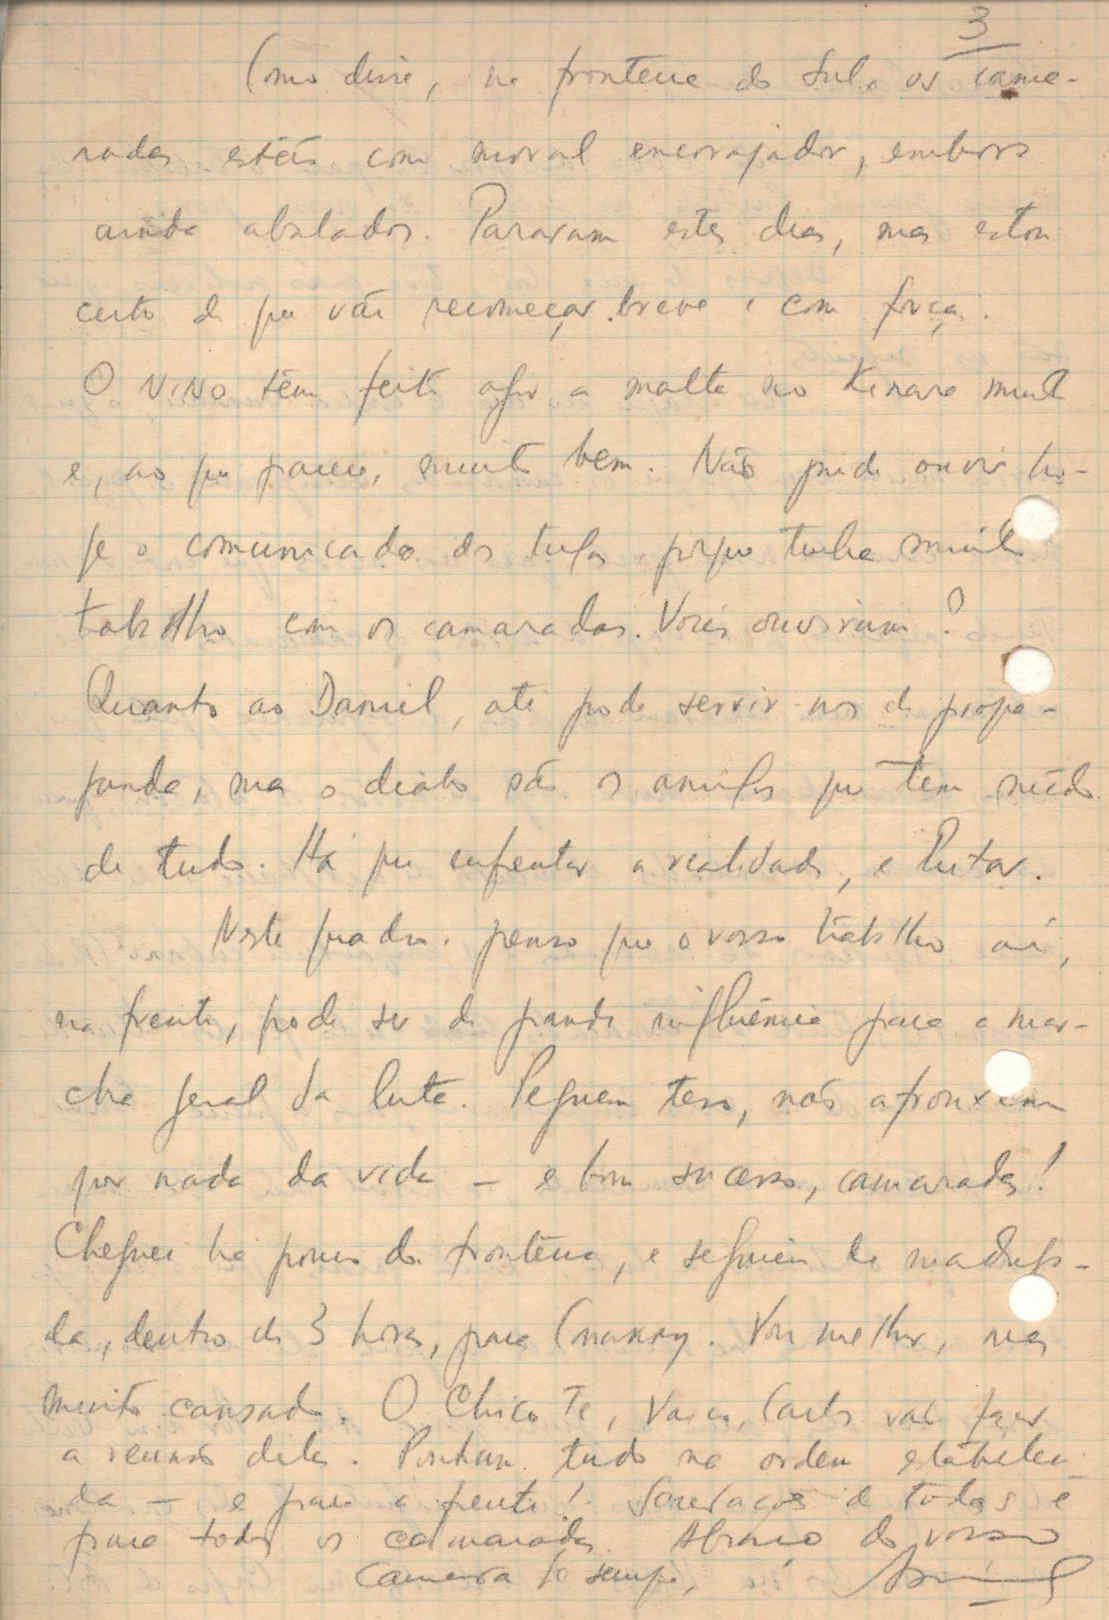 3
Como disse, na fronteira do Sul, os cama-
radas estão com moral encorajador, embora
ainda abalados. Pararam estes dias, mas estou
certo de que vão recomeçar breve e com força.
O NINO tem feito agir a malta no Kinara muito
e, ao que parece, muito bem. Não pude ouvir ho-
je o comunicado dos tugas, porque tinha muito
trabalho com os camaradas. Vocês ouviram?
Quanto ao Daniel, até pode servir-nos de propa-
ganda, mas o diabo são os amigos que têm mêdo
de tudo. Há que enfrentar a realidade, e lutar.
Neste quadro, penso que o vosso trabalho aí,
na frente, pode ser de grande influência para a mar-
cha geral da luta. Peguem teso, não afrouxem
por nada da vida — e bom sucesso, camaradas!
Cheguei há pouco da fronteira, e seguirei de madruga-
da, dentro de 3 horas, para Conakry. Vou melhor, mas
muito cansado. O Chico Té, Vasco, Carlos vão fazer
a reunião deles. Ponham tudo na ordem estabeleci-
da — e para a frente! Saudações de todos e
para todos os camaradas. Abraço do vosso
camarada de sempre,